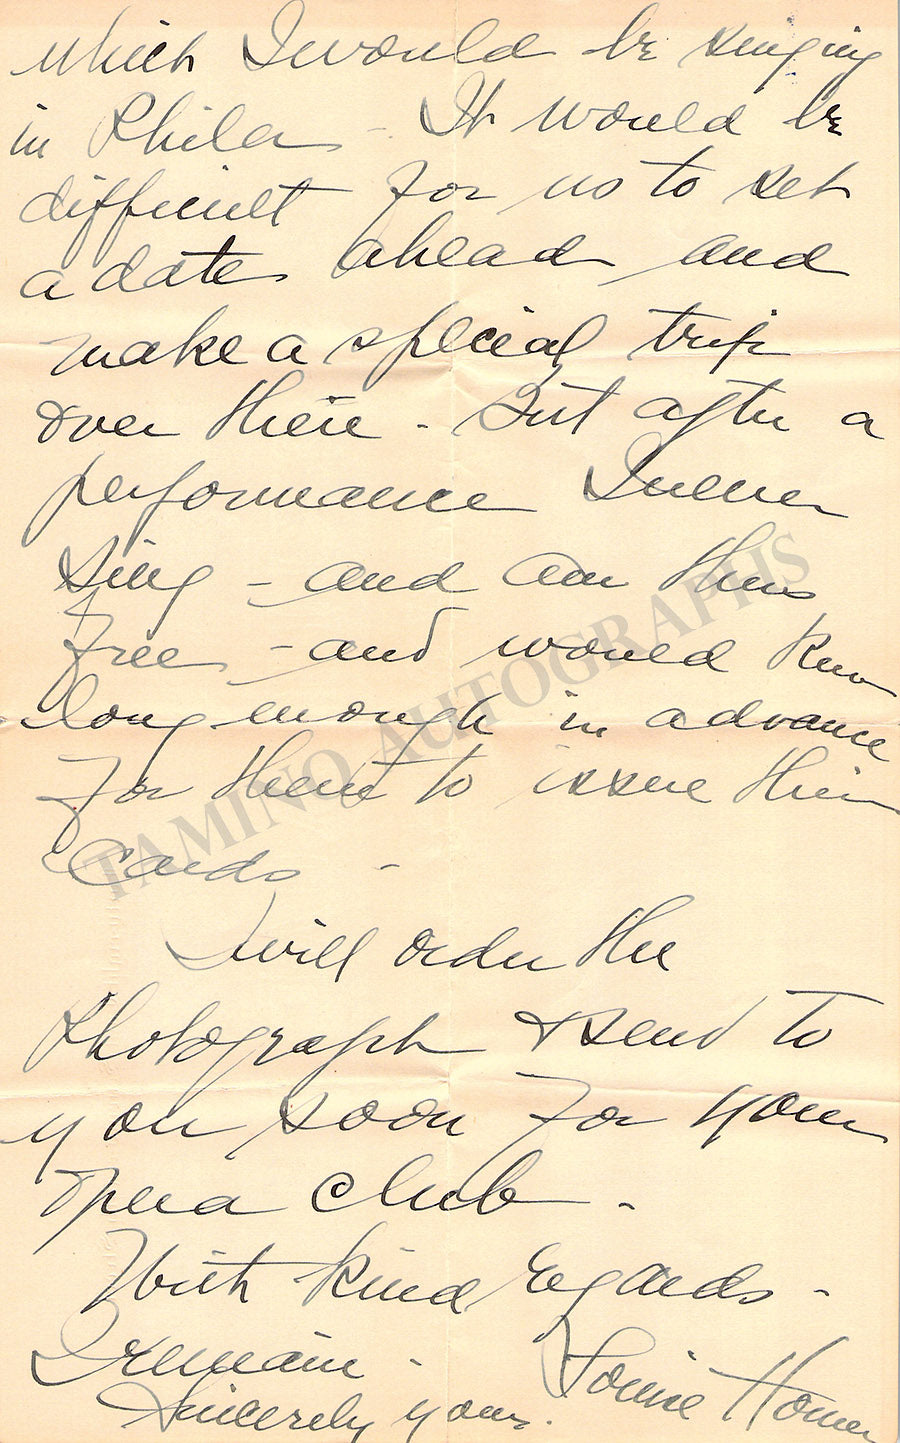 which I would be singing
in Phila - It would be
difficult for us to set
a date ahead and
make a special trip
over there - But after a
performance I never
sing - and am thus
free - and would know
long enough in advance
for them to issue their
cards -
I will order the
Photograph & send to
you soon for your
opera club -
With kind regards -
I remain -
Sincerely yours.
Louise Homer
TAMINO AUTOGRAPHS